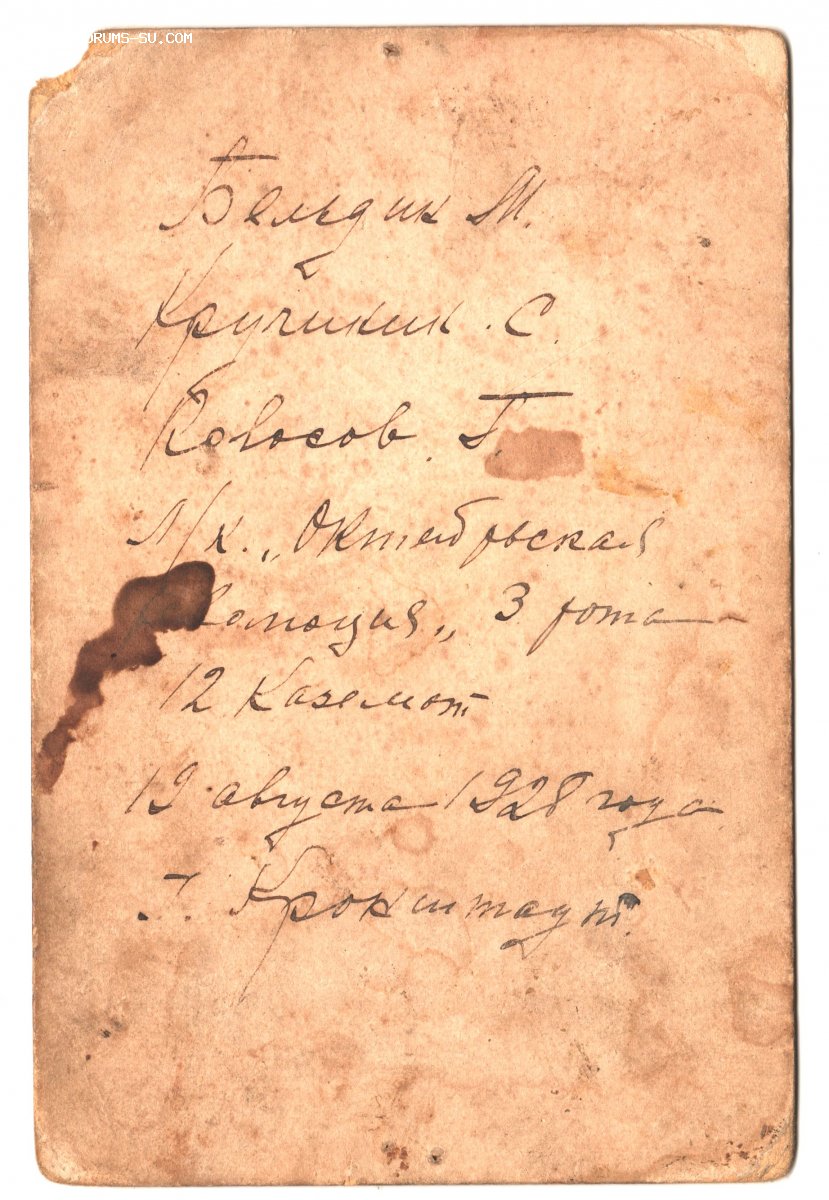 ORUMS-SU.COM
Бельдин М.
Кручинин. С.
Колосов. Г.
Л/к. „Октебрьская
Революция„ 3 рота
12 Каземат
19 августа 1928 года
г. Кронштадт.